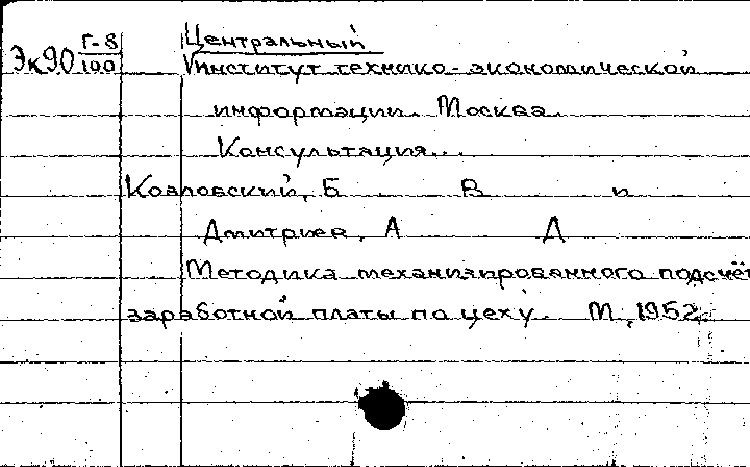 Эк90 Г-8/100
Центральный
институт технико-экономической
информации. Москва.
Консультация...
Козловский, Б В и
Дмитриев, А Д
Методика механизированного подсчёт
заработной платы по цеху. М, 1952